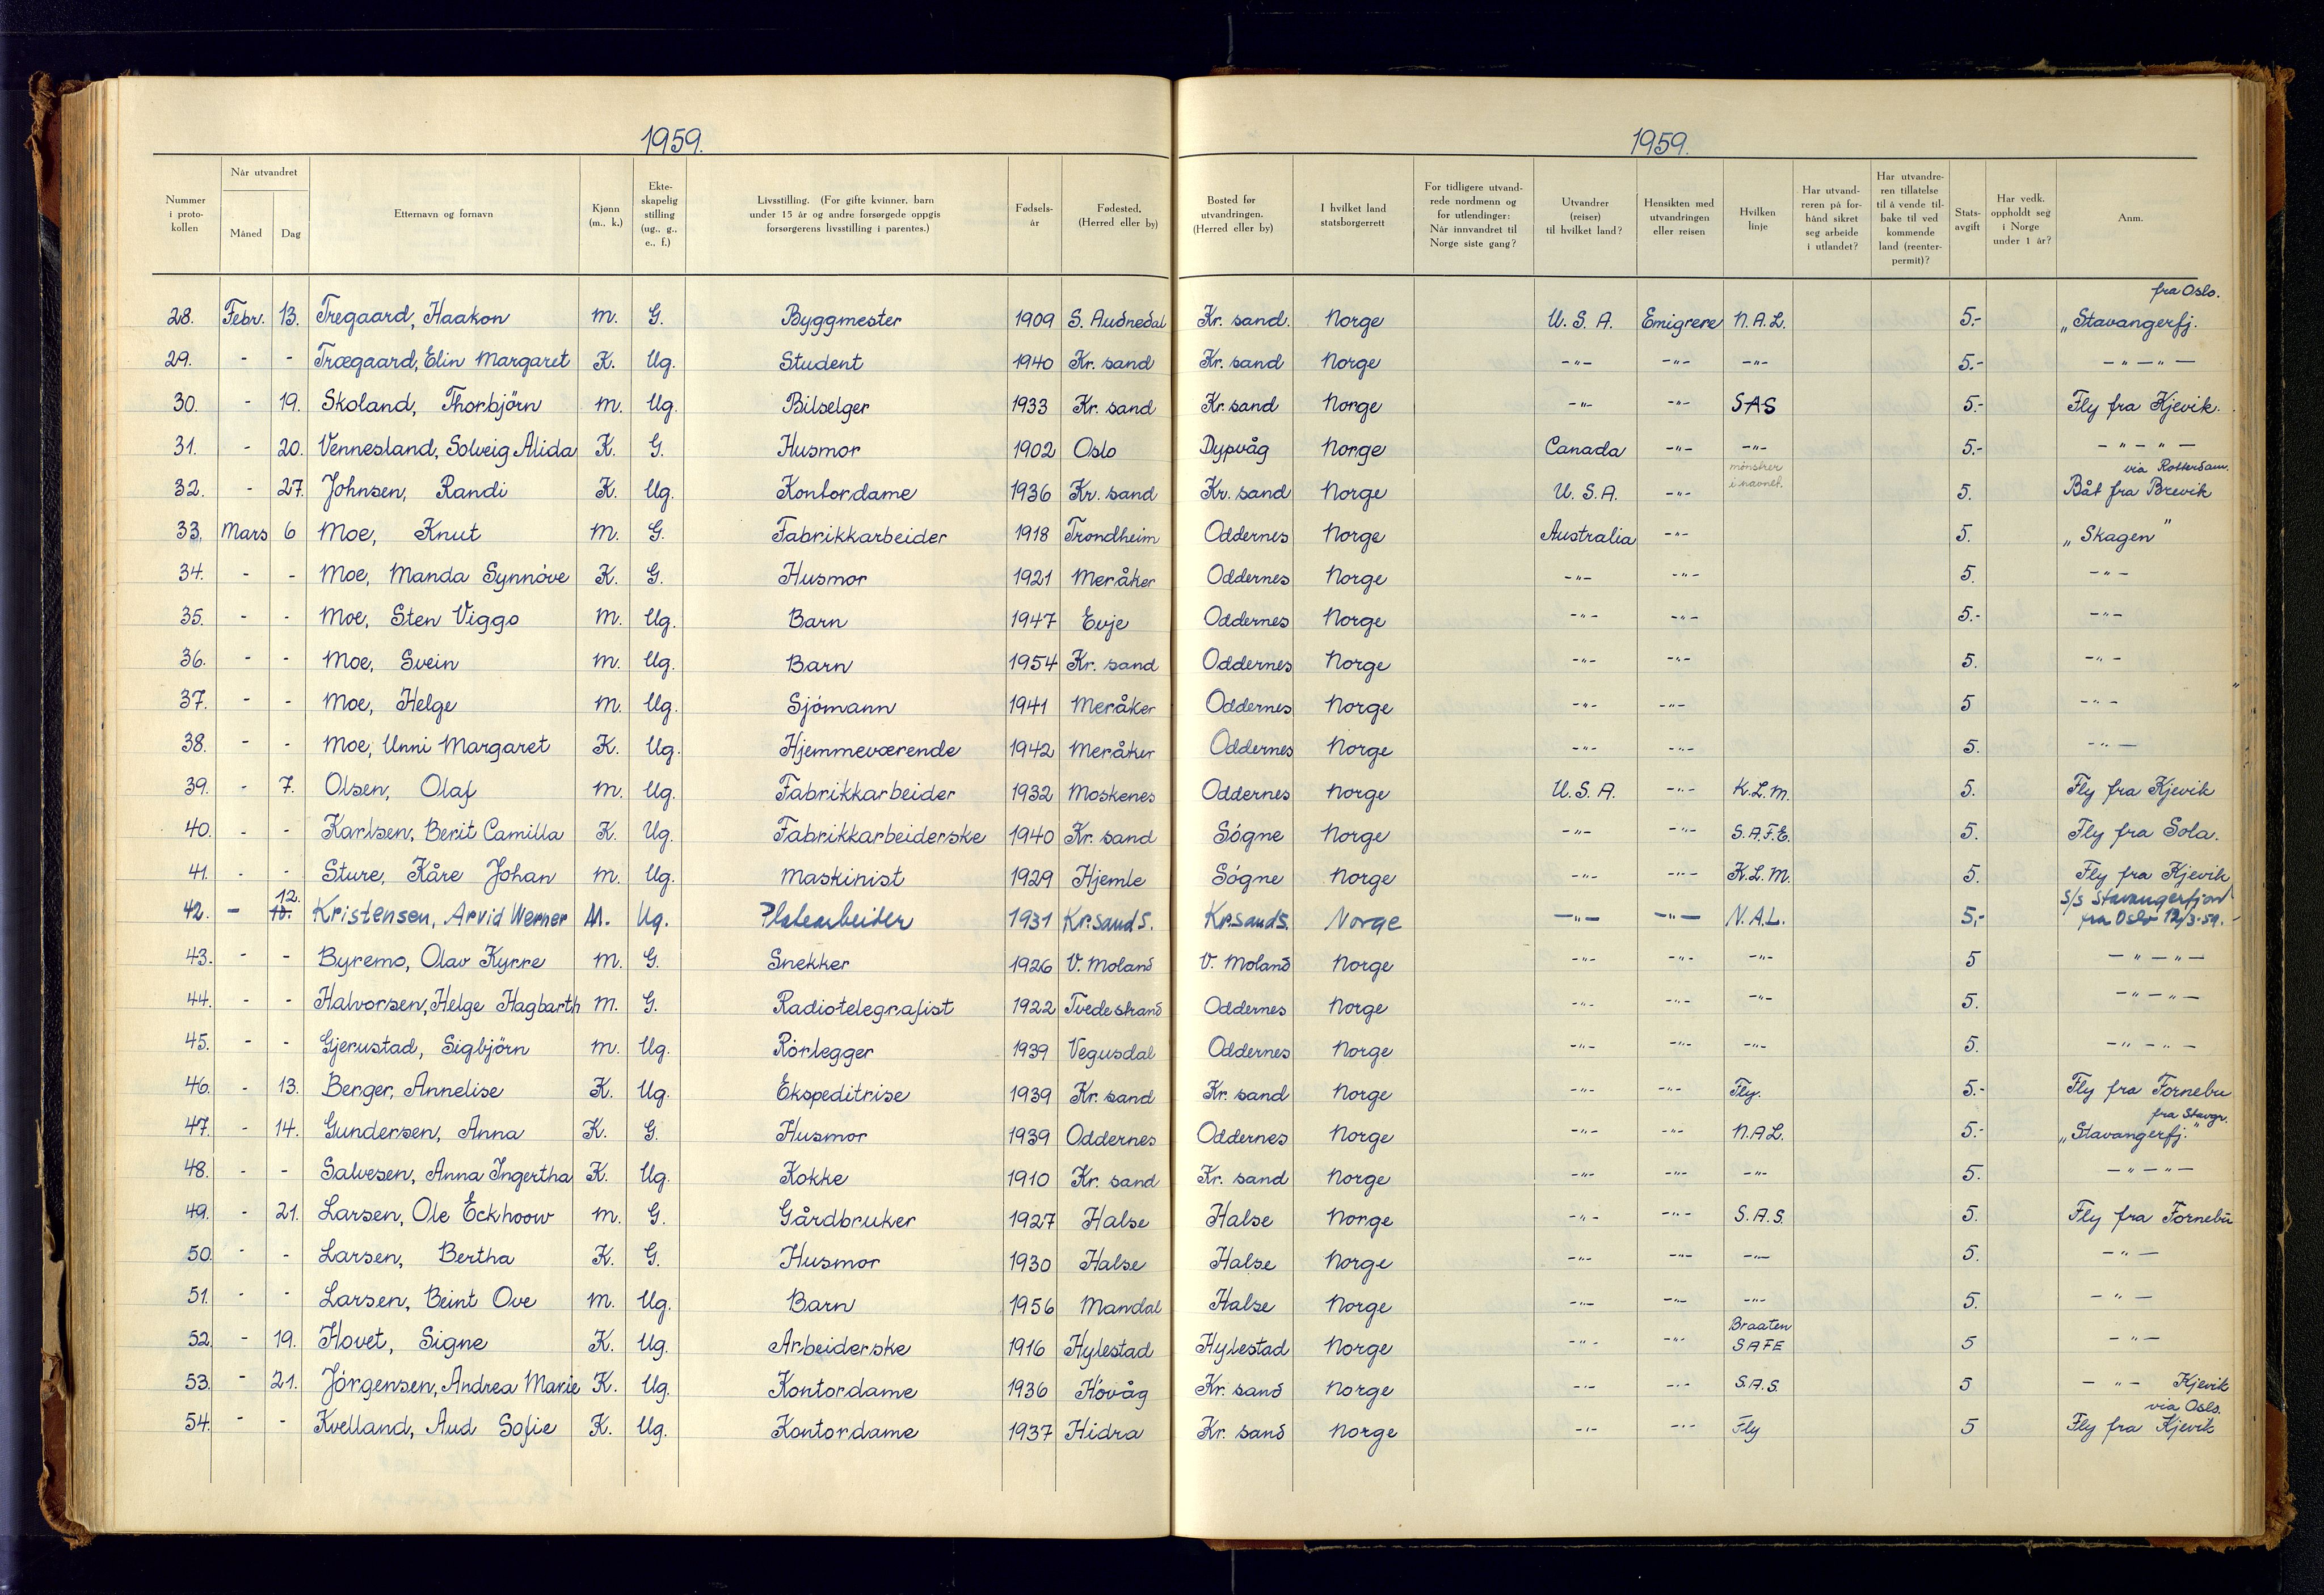 1959.
1959.
Nummer i protokollen | Når utvandret Måned | Dag | Etternavn og fornavn | Kjønn (m., k.) | Ekteskapelig stilling (ug., g., e., f.) | Livsstilling. (For gifte kvinner, barn under 15 år og andre forsørgede oppgis forsørgerens livsstilling i parentes.) | Fødselsår | Fødested. (Herred eller by) | Bosted før utvandringen. (Herred eller by) | I hvilket land statsborgerrett | For tidligere utvandrede nordmenn og for utlendinger: Når innvandret til Norge siste gang? | Utvandrer (reiser) til hvilket land? | Hensikten med utvandringen eller reisen | Hvilken linje | Har utvandreren på forhånd sikret seg arbeide i utlandet? | Har utvandreren tillatelse til å vende tilbake til ved kommende land (reenterpermit)? | Statsavgift | Har vedk. oppholdt seg i Norge under 1 år? | Anm.
28. Febr. 13. Tregaard, Haakon m. G. Byggmester 1909 S. Audnedal Kr. sand. Norge U. S. A. Emigrere N. A. L. 5.- fra Oslo. „Stavangerfj.
29. - - Trægaard, Elin Margaret K. Ug. Student 1940 Kr. sand Kr. sand Norge -"- -"- -"- 5.- - " - " -
30. - 19. Skoland, Thorbjörn m. Ug. Bilselger 1933 Kr. sand Kr. sand Norge -"- -"- SAS 5.- Fly fra Kjevik.
31. - 20. Vennesland, Solveig Alida K. G. Husmor 1902 Oslo Dypvåg Norge Canada -"- -"- 5.- - " - " -
32. - 27. Johnsen, Randi K. Ug. Kontordame 1936 Kr. sand Kr. sand Norge U. S. A. -"- mönstrer i navnet. 5. via Rotterdam. Båt fra Brevik
33. Mars 6 Moe, Knut m. G. Fabrikkarbeider 1918 Trondheim Oddernes Norge Australia -"- 5. „Skagen"
34. - - Moe, Manda Synnöve K. G. Husmor 1921 Meråker Oddernes Norge -"- -"- 5. -"-
35. - - Moe, Sten Viggo m. Ug. Barn 1947 Evje Oddernes Norge -"- -"- 5.- -"-
36. - - Moe, Svein m. Ug. Barn 1954 Kr. sand Oddernes Norge -"- -"- 5. -"-
37. - - Moe, Helge m. Ug. Sjömann 1941 Meråker Oddernes Norge -"- -"- 5 -"-
38. - - Moe, Unni Margaret K. Ug. Hjemmeværende 1942 Meråker Oddernes Norge -"- -"- 5. -"-
39. - 7. Olsen, Olaf m. Ug. Fabrikkarbeider 1932 Moskenes Oddernes Norge U. S. A. -"- K. L. M. 5. Fly fra Kjevik
40. - - Karlsen, Berit Camilla K. Ug. Fabrikkarbeiderske 1940 Kr. sand Sógne Norge -"- -"- S. A. F. E. 5. Fly fra Sola.
41. - - Sture, Kåre Johan m. Ug. Maskinist 1929 Hjemle Sógne Norge -"- -"- K. L. M. 5. Fly fra Kjevik
42. - 12. 10. Kristensen, Arvid Werner M. Ug. Platearbeider 1931 Kr.sand S. Kr.sand S. Norge -"- -"- N. A. L. 5,- S/s Stavangerfjord fra Oslo 12/3-59.
43. - - Byremo, Olav Kyrre m. G. Snekker 1926 V. Moland V. Moland Norge -"- -"- -"- 5 - " - " -
44. - - Halvorsen, Helge Hagbarth m. G. Radiotelegrafist 1922 Tvedestrand Oddernes Norge -"- -"- -"- 5. - " - " -
45. - - Gjerustad, Sigbjörn m. Ug. Rörlegger 1939 Vegusdal Oddernes Norge -"- -"- -"- 5. - " - " -
46. - 13. Berger, Annelise K. Ug. Ekspeditrise 1939 Kr. sand Kr. sand Norge -"- -"- Fly. 5.- Fly fra Fornebu
47. - 14. Gundersen, Anna K. G. Husmor 1939 Oddernes Oddernes Norge -"- -"- N. A. L. 5.- fra Stavgr. „Stavangerfj."
48. - - Salvesen, Anna Ingertha K. Ug. Kokke 1910 Kr. sand Kr. sand Norge -"- -"- -"- 5. - " - " -
49. - 21. Larsen, Ole Eckhoow m. G. Gårdbruker 1927 Halse Halse Norge -"- -"- S. A. S. 5. Fly fra Fornebu
50. - - Larsen, Bertha K. G. Husmor 1930 Halse Halse Norge -"- -"- -"- 5. -"-
51. - - Larsen, Beint Ove m. Ug. Barn 1956 Mandal Halse Norge -"- -"- -"- 5. -"-
52. - 19. Hovet, Signe K. Ug. Arbeiderske 1916 Hylestad Hylestad Norge -"- -"- Braaten SAFE 5 -"-
53. - 21. Jörgensen, Andrea Marie K. Ug. Kontordame 1936 Hóvåg Kr. sand Norge -"- -"- S. A. S. 5 - " - Kjevik
54. - - Kvelland, Aud Sofie K. Ug. Kontordame 1937 Hidra Kr. sand Norge -"- -"- Fly 5 via Oslo. Fly fra Kjevik